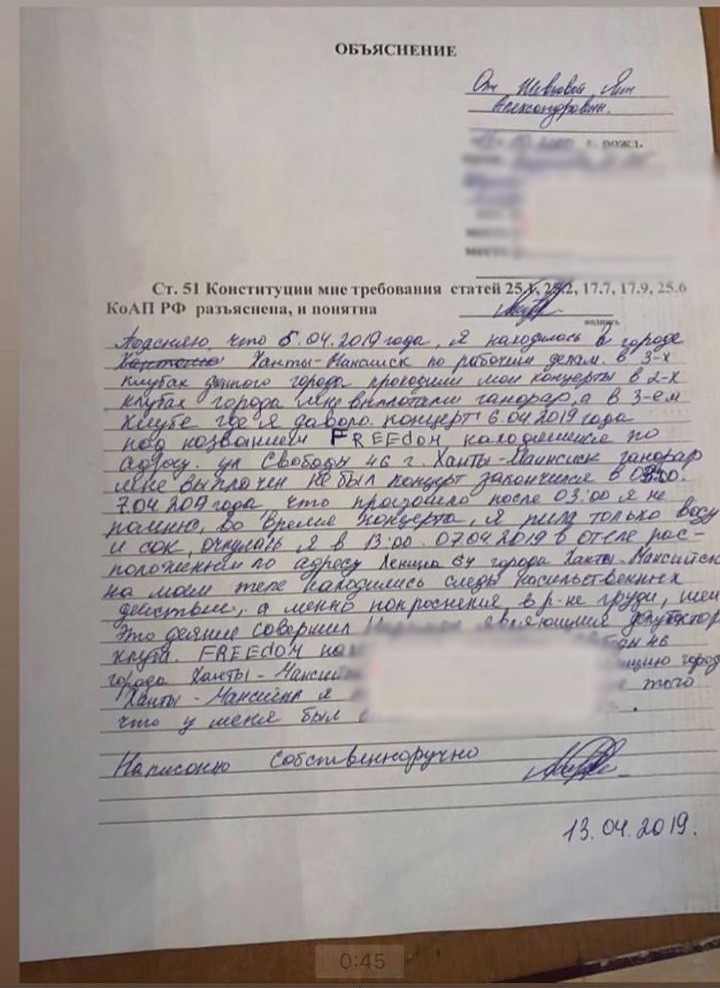 ОБЪЯСНЕНИЕ
От Шевцовой Яны
Александровны.
г. рожд.
Ст. 51 Конституции мне требования статей 25.1, 25.2, 17.7, 17.9, 25.6
КоАП РФ разъяснена, и понятна
подпись
Поясняю, что 5.04.2019 года, я находилась в городе
Ханты-Мансийск по рабочим делам. в 3-х
клубах данного города проходили мои концерты в 2-х
клубах города мне выплотали ганорар, а в 3-ем
клубе где я давола концерт 6.04.2019 года
под названием FREEdom, находишмся по
адресу. ул Свободы 46 г. Ханты-Маинсиск ганорар
мне выплачен не был концерт закончился в
7.04.2019 года что произошло после 03:00 я не
помню, во время концерта, я пила только воду
и сок, очнулась я в 13:00. 07.04.2019 в отеле рас-
положенным по адресу Ленина 64 города Ханты-Мансийск
на моем теле находились следы носильственных
действии, а менно покроснения, в р-не груди, шеи
Это деяние совершил являющимся
клуба. FREEdom 46
города Ханты- город
Ханты-Мансийка я того
что у меня был
Написонно собственноручно
13.04.2019.
0:45